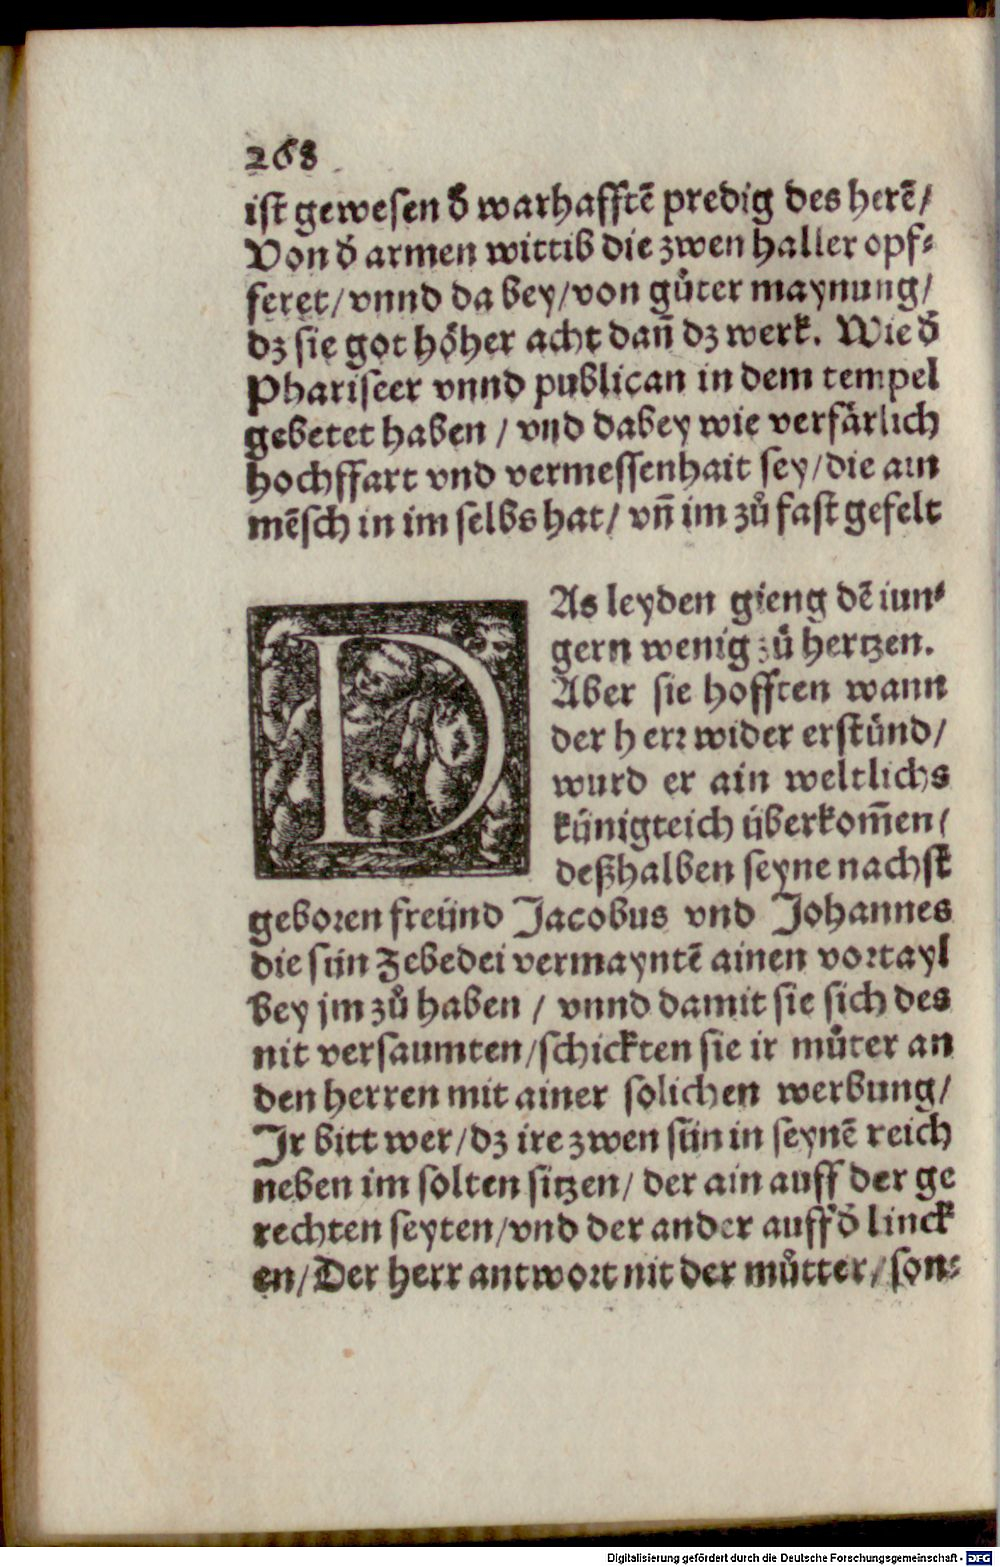 268
ist gewesen d̄ warhafftē predig des herē/
Von d̄ armen wittib die zwen haller opf⸗
feret/vnnd da bey/von gůter maynung/
dz sie got höher acht dañ dz werk. Wie d̄
Phariseer vnnd publican in dem tempel
gebetet haben / vnd dabey wie verfärlich
hochffart vnd vermessenhait sey/die ain
mēsch in im selbs hat/ vñ im zů fast gefelt
DAs leyden gieng dē iun⸗
gern wenig zů hertzen.
Aber sie hofften wann
der herr wider erstünd/
wurd er ain weltlichs
künigreich überkom̄en/
deßhalben seyne nachst
geboren freünd Jacobus vnd Johannes
die sün Zebedei vermayntē ainen vortayl
bey jm zů haben / vnnd damit sie sich des
nit versaumten/schickten sie ir můter an
den herren mit ainer solichen werbung/
Jr bitt wer/dz ire zwen sün in seynē reich
neben im solten sitzen/ der ain auff der ge
rechten seyten/vnd der ander auff d̄ linck
en/Der herr antwort nit der můtter/son⸗
Digitalisierung gefördert durch die Deutsche Forschungsgemeinschaft - DFG